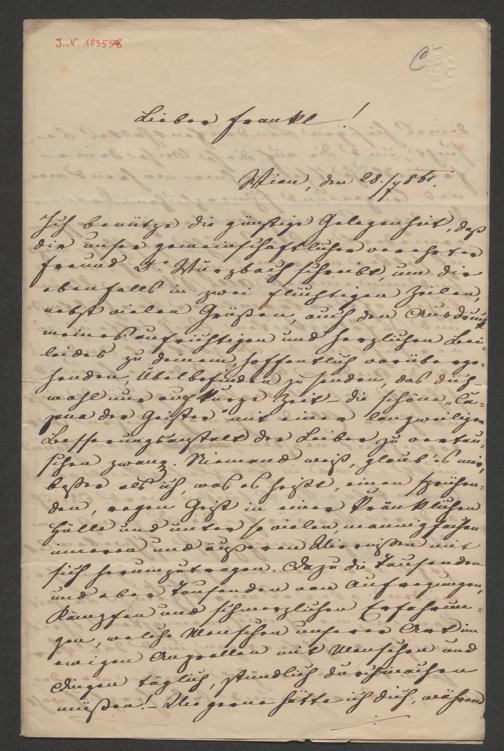 J. N. 103558
Lieber Frankl!
Wien, den 28./7 86.
Ich benütze die günstige Gelegenheit, daß
die unser gemeinschaftlicher verehrter
Freund Dr. Wurzbach schreibt, um dir
ebenfalls in zwei flüchtigen Zeilen,
nebst vielen Grüßen, auch den Ausdruck
meines aufrichtigen und herzlichen Bei-
leides zu deinem, hoffentlich vorüberge-
henden, Übelbefinden zu senden, das dich
wohl nur auf kurze Zeit die schöne
der Geister mit einer langweiligen
Besserungsanstalt der Leiber zu vertau-
schen zwang. Niemand weiß, glaub' es mir,
besser als ich, was es heißt, einen sprühen-
den, regen Geist in einer kränklichen
Hülle und unter so vielen mannigfachen
inneren und äußeren Wirrnissen mit
sich herumzutragen. Dazu die Tausenden
und aber Tausenden von Aufregungen,
Kämpfen und schmerzlichen Erfahrun-
gen, welche Menschen unserer Art im
ewigen Anprallen mit Menschen und
Dingen täglich, stündlich durchmachen
müßen! Wie gerne hätte ich dich, während